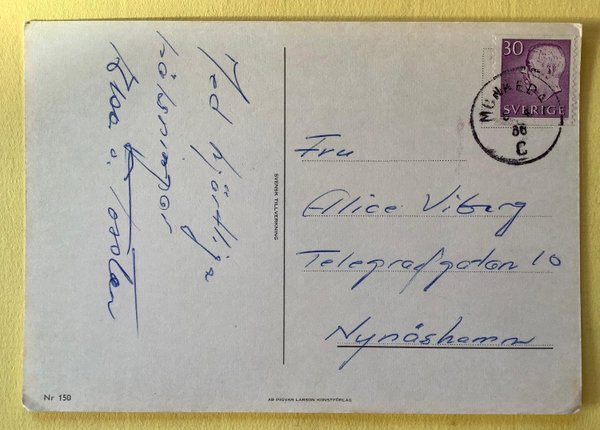 Med hjärtliga
hälsningar
30
SVERIGE
MUNKEDAL
66
C
Fru
Alice Viberg
Telegrafgatan 10
Nynäshamn
SVENSK TILLVERKNING
Nr 150
AB PIGVAR LARSON KONSTFÖRLAG